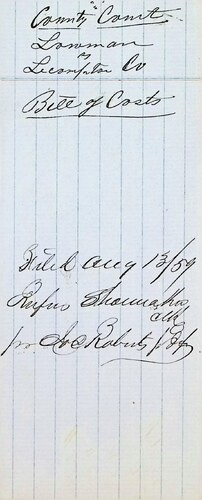 County Court
Lowman
vs
Lecompton Co
Bill of Costs
Filed Aug 13/59
Rufus
Clk
pr Jno C Roberts Dpy